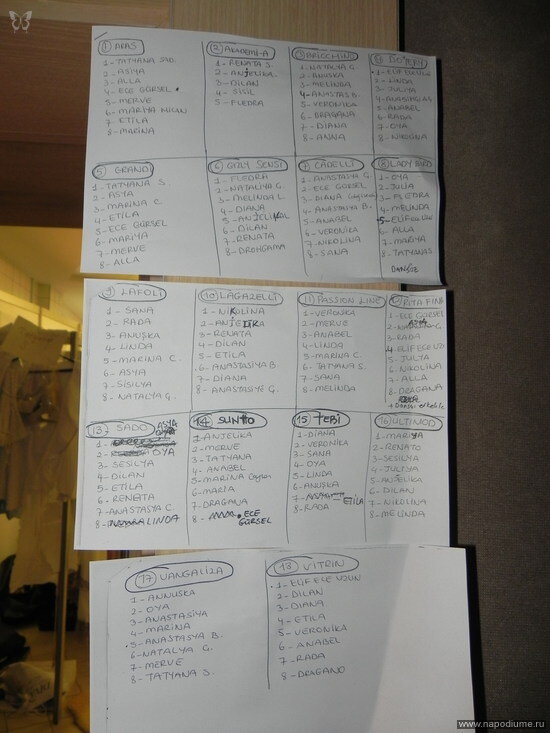 1 ARAS
1 - TATYANA SAD.
2 - ASIYA
3 - ALLA
4 - ECE GÜRSEL
5 - MERVE
6 - MARIYA
7 - ETILA
8 - MARINA
2 AKADEMI-A
1 - RENATA S.
2 - ANJELIKA
3 - DILAN
4 - SIGIL
5 - FLEDRA
3 BRICCHINO
1 - NATALYA G
2 - ANUSKA
3 - MELINDA
4 - ANASTAS B.
5 - VERONIKA
6 - BRAGANA
7 - DIANA
8 - ANNA
4
1 - ELIF ECE UZUN
2 - LINDA
3 - JULIYA
4 -
5 - ANABEL
6 - RADA
7 - OYA
8 - NIKOLINA
5 GRAND
1 - TATYANA S.
2 - ASYA
3 - MARINA C.
4 - ETILA
5 - ECE GÜRSEL
6 - MARIYA
7 - MERVE
8 - ALLA
6 GIZLY SENSI
1 - FLEDRA
2 - NATALIYA G.
3 - MELINDA L.
4 - DIANA
5 -
6 - DILAN
7 - RENATA
8 - DROHGAMA
7 CADELLI
1 - ANASTASYA G.
2 - ECE GÜRSEL
3 - DIANA
4 - ANASTASYA B.
5 - ANABEL
6 - VERONIKA
7 - NIKOLINA
8 - SANA
8 LADY BIRD
1 - OYA
2 - JULIA
3 - FLEDRA
4 - MELINDA
5 - ELIF ECE UZUN
6 - ALLA
7 - MARIYA
8 - TATYANAS
DANSÖZ
9 LAFOLI
1 - SANA
2 - RADA
3 - ANUŞKA
4 - LINDA
5 - MARINA C.
6 - ASYA
7 - SISILYA
8 - NATALY G.
10 LAGAZELLI
1 - NIKOLINA
2 - ANJELIKA
3 - RENATA
4 - DILAN
5 - ETILA
6 - ANASTASIYA B
7 - DIANA
8 - ANASTASIYA G.
11 PASSION LINE
1 - VERONIKA
2 - MERVE
3 - ANABEL
4 - LINDA
5 - MARINA C.
6 - TATYANA S.
7 - SANA
8 - MELINDA
12 RITA FINE
1 - ECE GÜRSEL
2 -
3 - RADA
4 - ELIF ECE UZ
5 - JULYA
6 - NIKOLINA
7 - ALLA
8 - DRAGANA
13 SADO
1 - ASYA
2 - OYA
3 - SESILYA
4 - DILAN
5 - ETILA
6 - RENATA
7 - ANASTASYA C.
8 - LINDA
14
1 - ANJELIKA
2 - MERVE
3 - TATIANA
4 - ANABEL
5 - MARINA
6 - MARIA
7 - DRAGANA
8 - ECE GÜRSEL
15 TEBI
1 - DIANA
2 - VERONIKA
3 - SANA
4 - OYA
5 - LINDA
6 - ANUŞKA
7 - ETILA
8 - RADA
16 ULTIMOD
1 - MARIYA
2 - RENATO
3 - SESILYA
4 - JULIYA
5 - ANJELIKA
6 - DILAN
7 - NIKOLINA
8 - MELINDA
17 VANGALIZA
1 - ANNUSKA
2 - OYA
3 - ANASTASIYA
4 - MARINA
5 - ANASTASYA B.
6 - NATALYA G.
7 - MERVE
8 - TATYANA S.
18 VITRIN
1 - ELIF ECE UZUN
2 - DILAN
3 - DIANA
4 - ETILA
5 - VERONIKA
6 - ANABEL
7 - RADA
8 - DRAGANO
www.napodiume.ru